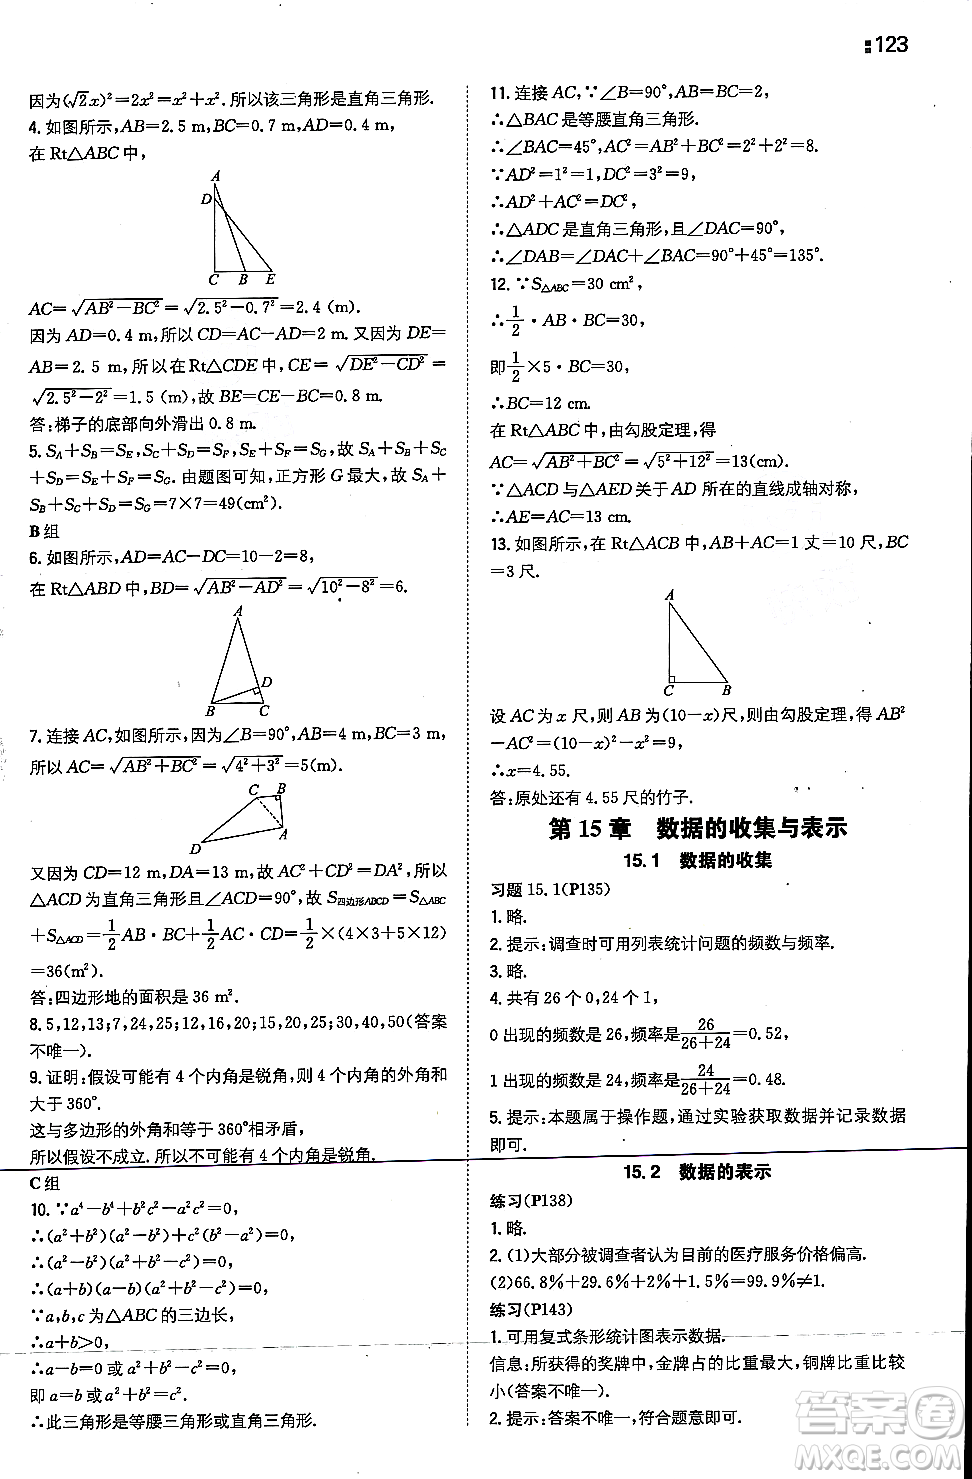 123
因为(√2x)²=2x²=x²+x².所以该三角形是直角三角形.
4.如图所示,AB=2.5 m,BC=0.7 m,AD=0.4 m,
在Rt△ABC中,
A
D
C B E
AC=√(AB²-BC²)=√(2.5²-0.7²)=2.4(m).
因为AD=0.4 m,所以CD=AC-AD=2 m.又因为DE=
AB=2.5 m,所以在Rt△CDE中,CE=√(DE²-CD²)=
√(2.5²-2²)=1.5(m),故BE=CE-BC=0.8 m.
答:梯子的底部向外滑出0.8 m.
5.S_A+S_B=S_E,S_C+S_D=S_F,S_E+S_F=S_G,故S_A+S_B+S_C
+S_D=S_E+S_F=S_G.由题图可知,正方形G最大,故S_A+
S_B+S_C+S_D=S_G=7×7=49(cm²).
B组
6.如图所示,AD=AC-DC=10-2=8,
在Rt△ABD中,BD=√(AB²-AD²)=√(10²-8²)=6.
A
D
B C
7.连接AC,如图所示,因为∠B=90°,AB=4 m,BC=3 m,
所以AC=√(AB²+BC²)=√(4²+3²)=5(m).
C B
A
D
又因为CD=12 m,DA=13 m,所以AC²+CD²=DA²,故
△ACD为直角三角形,∠ACD=90°,故S四边形ABCD=S△ABC
+S△ACD=1/2AB·BC+1/2AC·CD=1/2×(4×3+5×12)
=36(m²).
答:四边形地的面积是36 m².
8.5,12,13;7,24,25;12,16,20;15,20,25;30,40,50(答案
不唯一).
9.证明:假设可能有4个内角是锐角,则4个内角的外角和
大于360°.
这与多边形的外角和等于360°相矛盾,
所以假设不成立.所以不可能有4个内角是锐角.
C组
10.∵a⁴-b⁴+b²c²-a²c²=0,
∴(a²+b²)(a²-b²)+c²(b²-a²)=0,
∴(a²-b²)(a²+b²-c²)=0,
∴(a+b)(a-b)(a²+b²-c²)=0,
∵a,b,c为△ABC的三边长,
∴a+b>0,
∴a-b=0或a²+b²-c²=0,
即a=b或a²+b²=c²,
∴此三角形是等腰三角形或直角三角形.
11.连接AC,∵∠B=90°,AB=BC=2,
∴△BAC是等腰直角三角形.
∴∠BAC=45°,AC²=AB²+BC²=2²+2²=8.
∵AD²=1²=1,DC²=3²=9,
∴AD²+AC²=DC²,
∴△ADC是直角三角形,且∠DAC=90°,
∴∠DAB=∠DAC+∠BAC=90°+45°=135°.
12.∵S△ABC=30 cm²,
∴1/2·AB·BC=30,
即1/2×5·BC=30,
∴BC=12 cm.
在Rt△ABC中,由勾股定理,得
AC=√(AB²+BC²)=√(5²+12²)=13(cm).
∵△ACD与△AED关于AD所在的直线成轴对称,
∴AE=AC=13 cm.
13.如图所示,在Rt△ACB中,AB+AC=1丈=10尺,BC
=3尺.
A
C B
设AC为x尺,则AB为(10-x)尺,则由勾股定理,得AB²
-AC²=(10-x)²-x²=9,
∴x=4.55.
答:原处还有4.55尺的竹子.
第15章 数据的收集与表示
15.1 数据的收集
习题15.1(P135)
1.略.
2.提示:调查时可用列表统计问题的频数与频率.
3.略.
4.共有26个0,24个1,
0出现的频数是26,频率是26/(26+24)=0.52,
1出现的频数是24,频率是24/(26+24)=0.48.
5.提示:本题属于操作题,通过实验获取数据并记录数据
即可.
15.2 数据的表示
练习(P138)
1.略.
2.(1)大部分被调查者认为目前的医疗服务价格偏高.
(2)66.8%+29.6%+2%+1.5%=99.9%≠1.
练习(P143)
1.可用复式条形统计图表示数据.
信息:所获得的奖牌中,金牌占的比重最大,铜牌比重较
小(答案不唯一).
2.提示:答案不唯一,符合题意即可.
答案圈
MXQE.COM